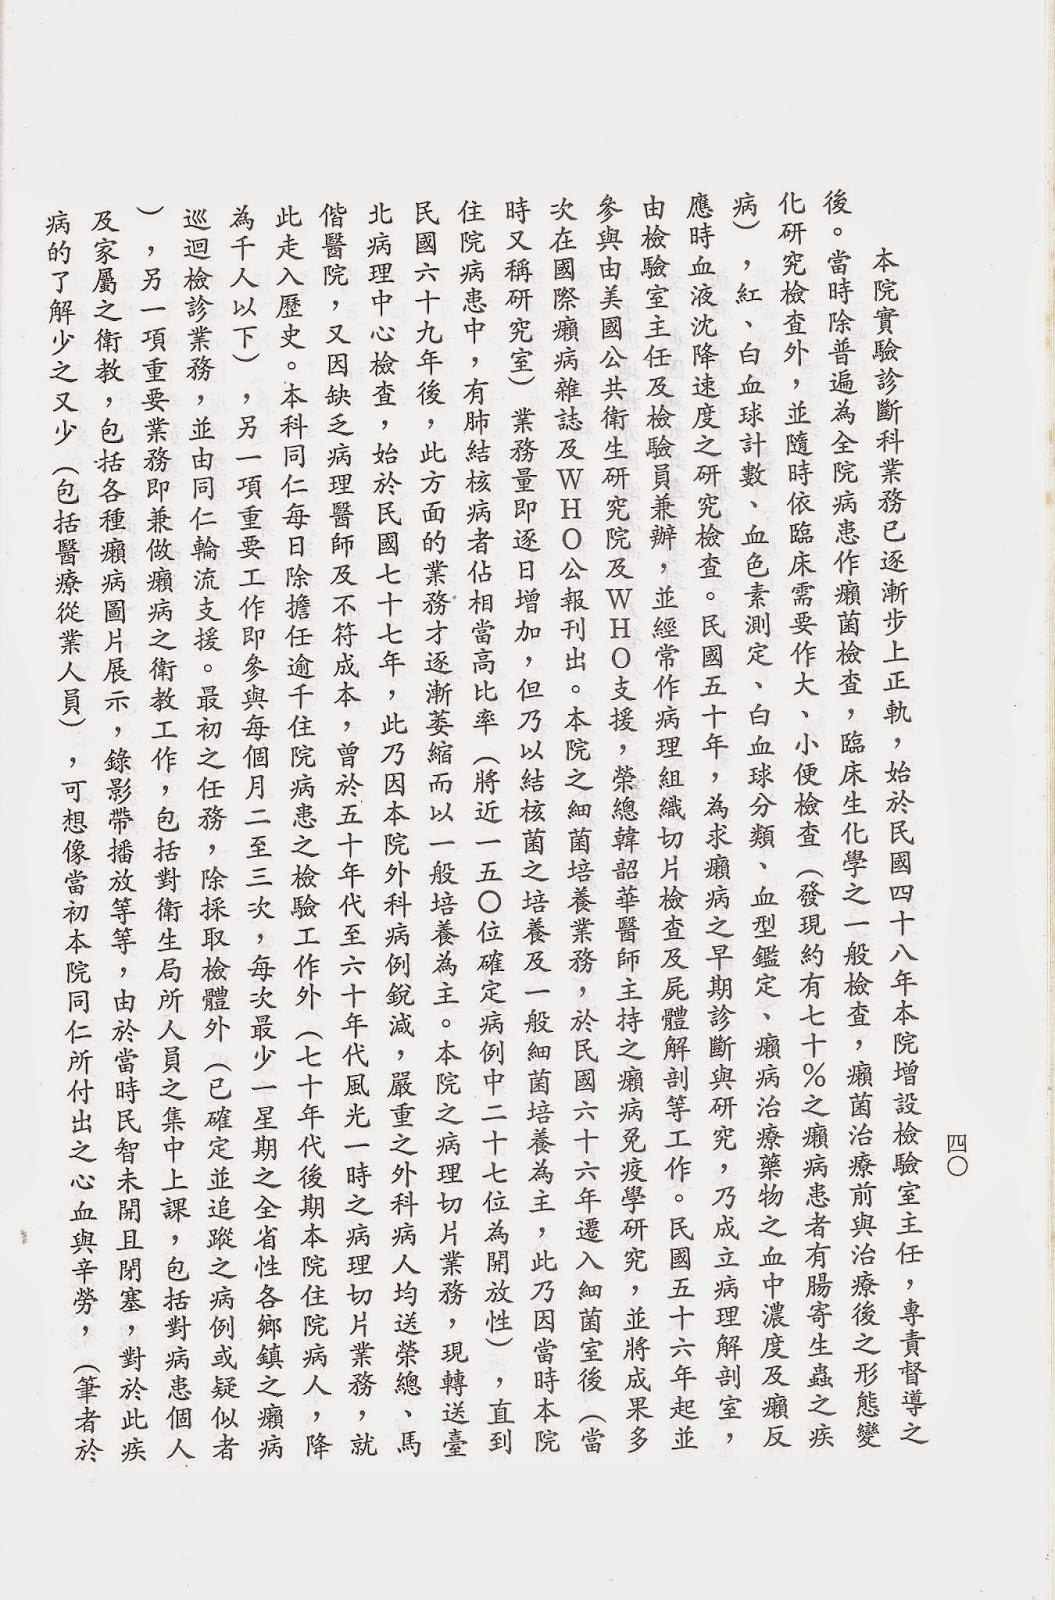 四〇
本院實驗診斷科業務已逐漸步上正軌，始於民國四十八年本院增設檢驗室主任，專責督導之
後。當時除普遍為全院病患作癩菌檢查，臨床生化學之一般檢查，癩菌治療前與治療後之形態變
化研究檢查外，並隨時依臨床需要作大、小便檢查（發現約有七十％之癩病患者有腸寄生蟲之疾
病），紅、白血球計數、血色素測定、白血球分類、血型鑑定、癩病治療藥物之血中濃度及癩反
應時血液沈降速度之研究檢查。民國五十年，為求癩病之早期診斷與研究，乃成立病理解剖室，
由檢驗室主任及檢驗員兼辦，並經常作病理組織切片檢查及屍體解剖等工作。民國五十六年起並
參與由美國公共衛生研究院及ＷＨＯ支援，榮總韓韶華醫師主持之癩病免疫學研究，並將成果多
次在國際癩病雜誌及ＷＨＯ公報刊出。本院之細菌培養業務，於民國六十六年遷入細菌室後（當
時又稱研究室）業務量即逐日增加，但乃以結核菌之培養及一般細菌培養為主，此乃因當時本院
住院病患中，有肺結核病者佔相當高比率（將近一五〇位確定病例中二十七位為開放性），直到
民國六十九年後，此方面的業務才逐漸萎縮而以一般培養為主。本院之病理切片業務，現轉送臺
北病理中心檢查，始於民國七十七年，此乃因本院外科病例銳減，嚴重之外科病人均送榮總、馬
偕醫院，又因缺乏病理醫師及不符成本，曾於五十年代至六十年代風光一時之病理切片業務，就
此走入歷史。本科同仁每日除擔任逾千住院病患之檢驗工作外（七十年代後期本院住院病人，降
為千人以下），另一項重要工作即參與每個月二至三次，每次最少一星期之全省性各鄉鎮之癩病
巡迴檢診業務，並由同仁輪流支援。最初之任務，除採取檢體外（已確定並追蹤之病例或疑似者
），另一項重要業務即兼做癩病之衛教工作，包括對衛生局所人員之集中上課，包括對病患個人
及家屬之衛教，包括各種癩病圖片展示，錄影帶播放等等，由於當時民智未開且閉塞，對於此疾
病的了解少之又少（包括醫療從業人員），可想像當初本院同仁所付出之心血與辛勞，（筆者於